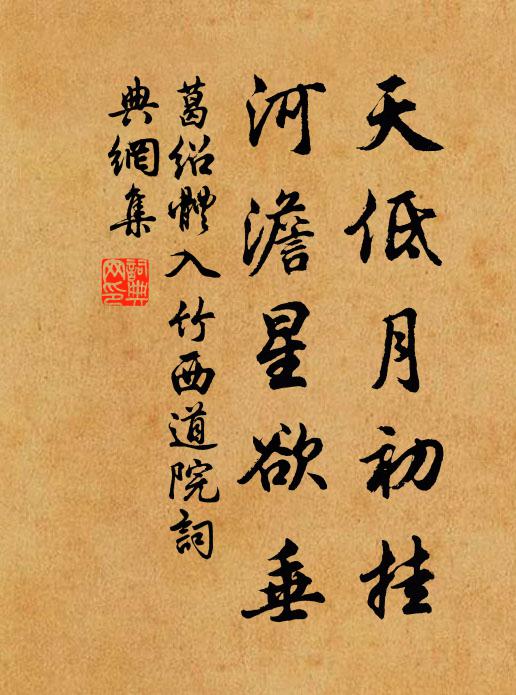 天低月初挂
河澹星欲垂
葛绍體入竹西道院詞
典網集
詞典
网印